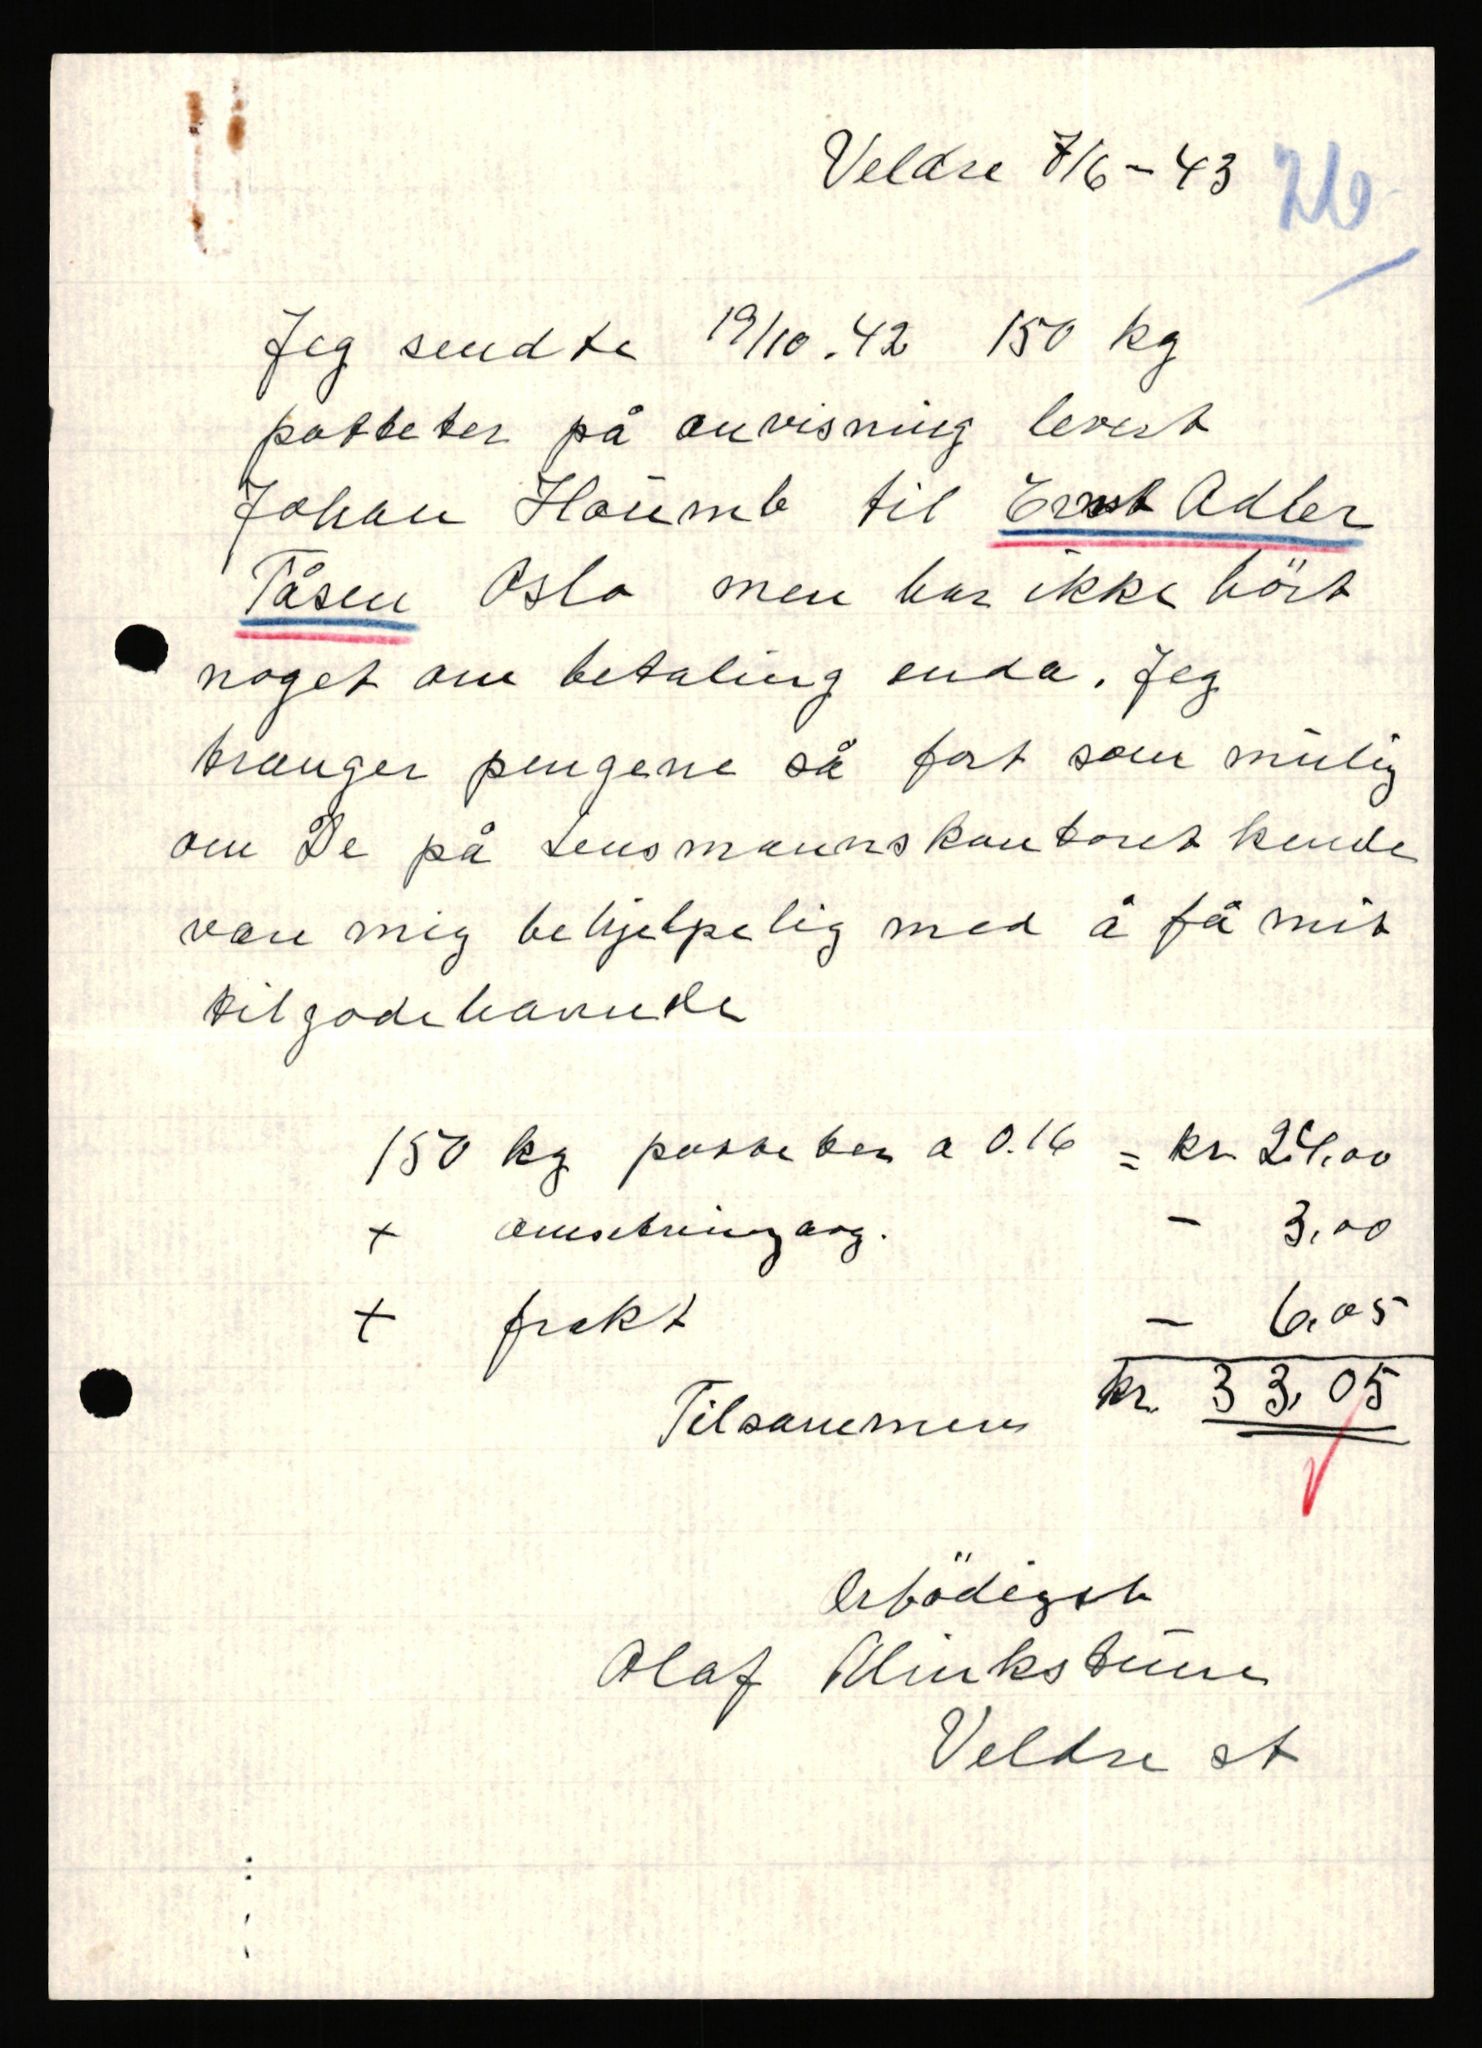 Veldre 7/6 - 43
Jeg sendte 19/10.42 150 kg
potteter på anvisning levert
Johan Haumb til Ernst Adler
Tåsen Oslo men har ikke hört
noget om betaling enda. Jeg
trænger pengene så fort som mulig
om De på Lensmannskontoret kunde
være mig behjelpelig med å få mit
tilgodehavende
150 kg potteter a 0.16 = kr 24,00
+ omsetningavg. - 3,00
+ frakt - 6,05
Tilsammen kr. 33,05
Erbödigst
Olaf
Veldre st